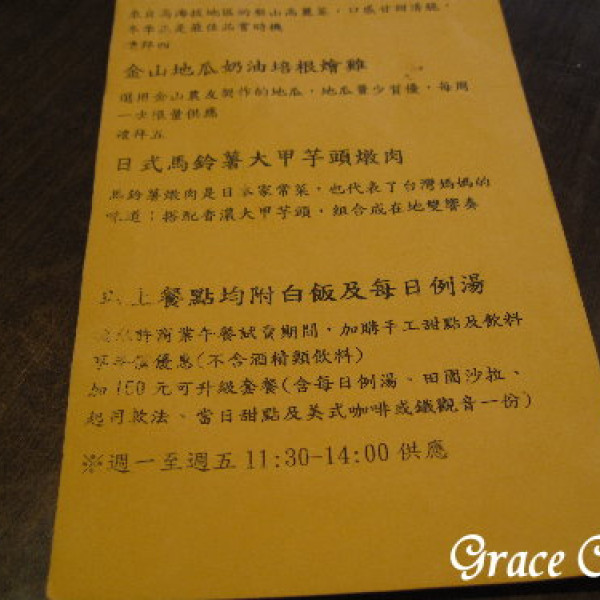 來自高海拔地區的梨山高麗菜,口感甘甜清脆,
本季正是最佳品嘗時機
禮拜四
金山地瓜奶油培根燴雞
選用金山農友契作的地瓜,地瓜量少質優,每周
一次限量供應
禮拜五
日式馬鈴薯大甲芋頭燉肉
馬鈴薯燉肉是日本家常菜,也代表了台灣媽媽的
味道;搭配香濃大甲芋頭,組合成在地雙響奏
以上餐點均附白飯及每日例湯
商業午餐試賣期間,加購手工甜點及飲料
優惠(不含酒精類飲料)
加 150 元可升級套餐(含每日例湯、田園沙拉、
起司救法、當日甜點及美式咖啡或鐵觀音一份)
※週一至週五 11:30-14:00 供應
Grace C